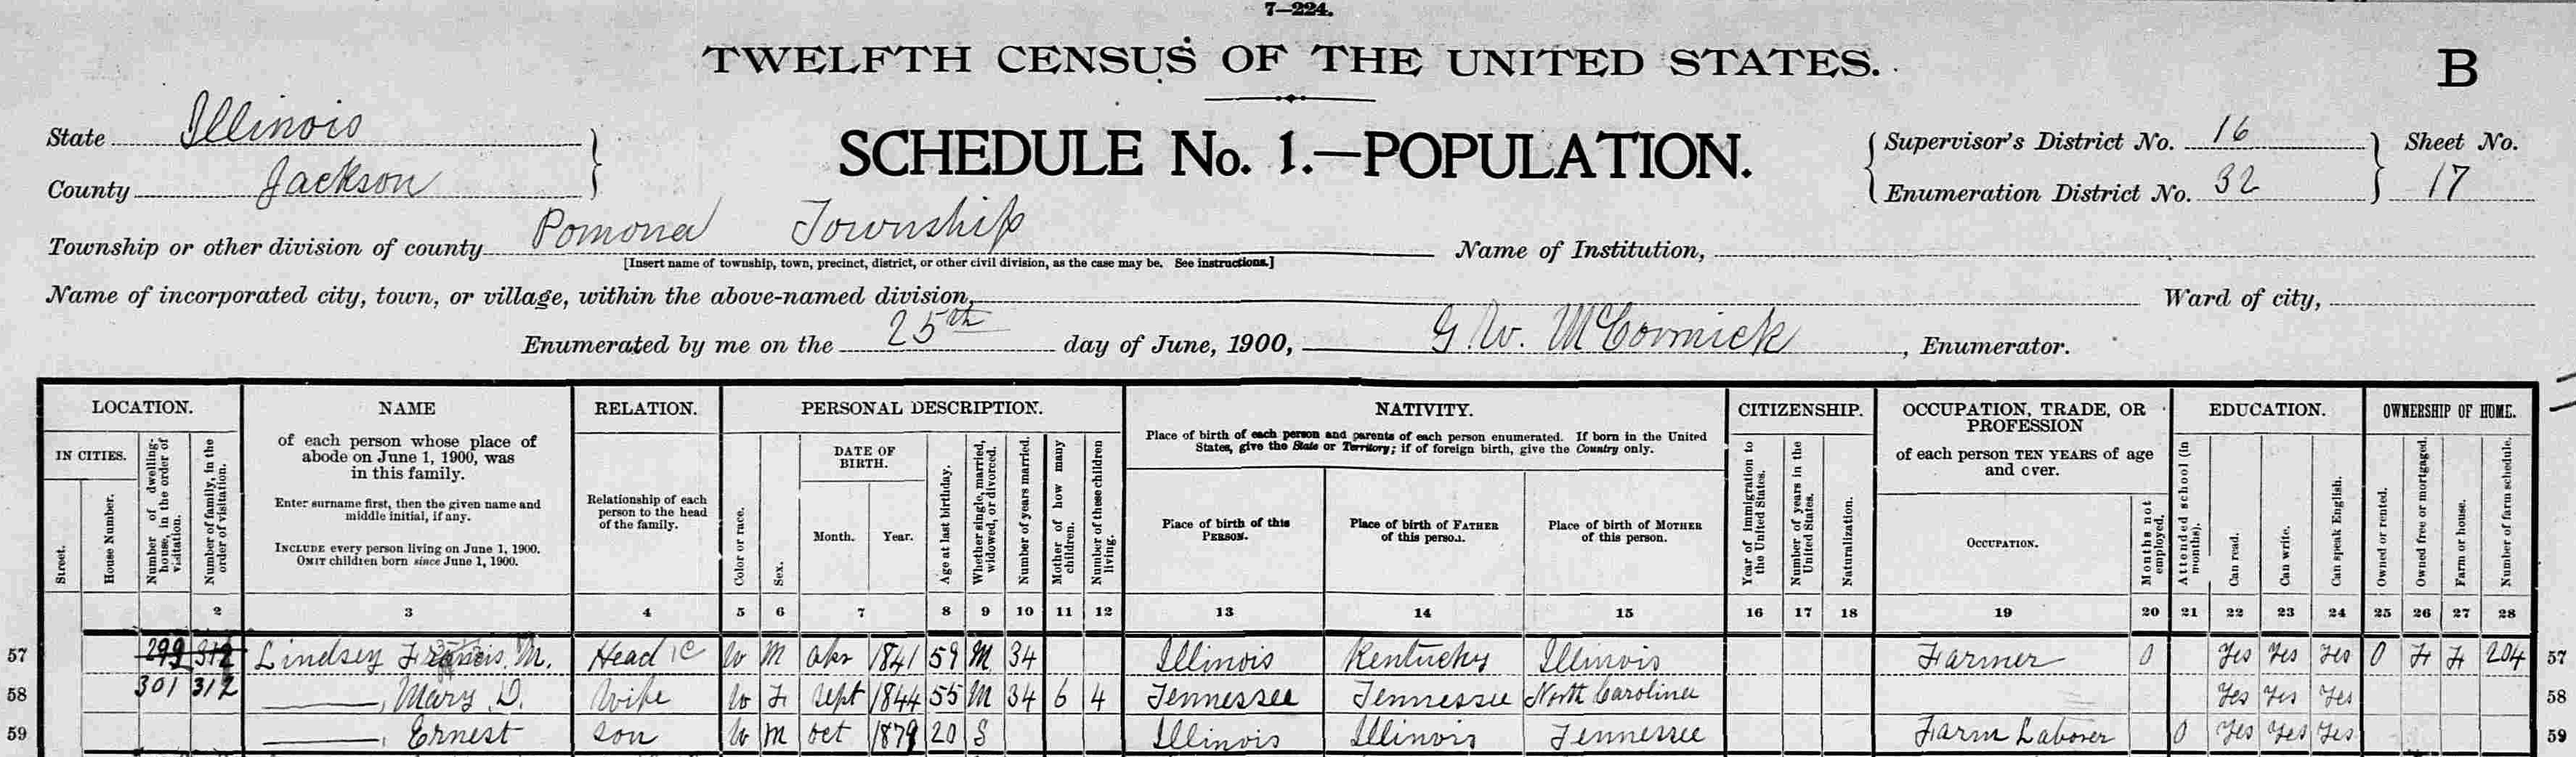 7—224.
TWELFTH CENSUS OF THE UNITED STATES.
B
State Illinois
County Jackson
SCHEDULE No. 1.—POPULATION.
Supervisor's District No. 16
Enumeration District No. 32
Sheet No.
17
Township or other division of county Pomona Township
[Insert name of township, town, precinct, district, or other civil division, as the case may be. See instructions.]
Name of Institution,
Name of incorporated city, town, or village, within the above-named division,
Ward of city,
Enumerated by me on the 25th day of June, 1900, G. W. McCormick, Enumerator.
LOCATION.
IN CITIES.
Street.
House Number.
Number of dwelling-house, in the order of visitation.
Number of family, in the order of visitation.
NAME
of each person whose place of
abode on June 1, 1900, was
in this family.
Enter surname first, then the given name and
middle initial, if any.
INCLUDE every person living on June 1, 1900.
OMIT children born since June 1, 1900.
RELATION.
Relationship of each
person to the head
of the family.
PERSONAL DESCRIPTION.
Color or race.
Sex.
DATE OF
BIRTH.
Month.
Year.
Age at last birthday.
Whether single, married, widowed, or divorced.
Number of years married.
Mother of how many children.
Number of these children living.
NATIVITY.
Place of birth of each person and parents of each person enumerated. If born in the United
States, give the State or Territory; if of foreign birth, give the Country only.
Place of birth of this
PERSON.
Place of birth of FATHER
of this person.
Place of birth of MOTHER
of this person.
CITIZENSHIP.
Year of immigration to the United States.
Number of years in the United States.
Naturalization.
OCCUPATION, TRADE, OR
PROFESSION
of each person TEN YEARS of age
and over.
OCCUPATION.
Months not employed.
EDUCATION.
Attended school (in months).
Can read.
Can write.
Can speak English.
OWNERSHIP OF HOME.
Owned or rented.
Owned free or mortgaged.
Farm or house.
Number of farm schedule.
2 3 4 5 6 7 8 9 10 11 12 13 14 15 16 17 18 19 20 21 22 23 24 25 26 27 28
57 299 312 Lindsey Francis, M. Head W M Apr 1841 59 M 34 Illinois Kentucky Illinois Farmer 0 Yes Yes Yes O F F 204 57
58 301 312 ———, Mary, D. Wife W F Sept 1844 55 M 34 6 4 Tennessee Tennessee North Carolina Yes Yes Yes 58
59 ———, Ernest Son W M Oct 1879 20 S Illinois Illinois Tennessee Farm Laborer 0 Yes Yes Yes 59